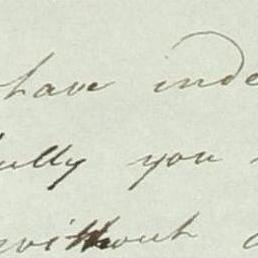 have inde
ully you
without a